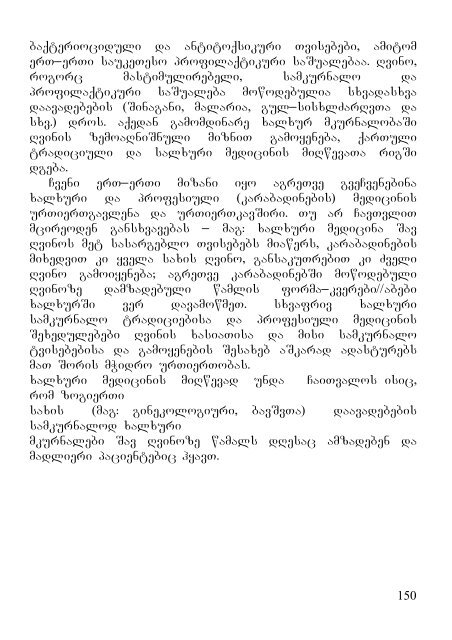 ბაქტერიოციდული და ანტიტოქსიკური თვისებები, ამიტომ
ერთ–ერთი საუკეთესო პროფილაქტიკური საშუალებაა. ღვინო,
როგორც მასტიმულირებელი, სამკურნალო და
პროფილაქტიკური საშუალება მოწოდებულია სხვადასხვა
დაავადებების (შინაგანი, მალარია, გულ–სისხლძარღვთა და
სხვ.) დროს. აქედან გამომდინარე ხალხურ მკურნალობაში
ღვინის ზემოაღნიშნული მიზნით გამოყენება, ქართული
ტრადიციული და სალხური მედიცინის მიღწევათა რიგში
დგება.
ჩვენი ერთ–ერთი მიზანი იყო აგრეთვე გვეჩვენებინა
ხალხური და პროფესიული (კარაბადინების) მედიცინის
ურთიერთგავლენა და ურთიერთკავშირი. თუ არ ჩავთვლით
მცირეოდენ განსხვავებას – მაგ: ხალხური მედიცინა შავ
ღვინოს მეტ სასარგებლო თვისებებს მიაწერს, კარაბადინების
მიხედვით კი ყველა სახის ღვინო, განსაკუთრებით კი ძველი
ღვინო გამოიყენება; აგრეთვე კარაბადინებში მოწოდებული
ღვინოზე დამზადებული წამლის ფორმა–კვერები//აბები
ხალხურში ვერ დავამოწმეთ. სხვაფრივ ხალხური
სამკურნალო ტრადიციებისა და პროფესიული მედიცინის
შეხედულებები ღვინის ხასიათისა და მისი სამკურნალო
ტვისებებისა და გამოყენების შესახებ აშკარად ადასტურებს
მათ შორის მჭიდრო ურთიერთობას.
ხალხური მედიცინის მიღწევად უნდა ჩაითვალოს ისიც,
რომ ზოგიერთი
სახის (მაგ: გინეკოლოგიური, ბავშვთა) დაავადებების
სამკურნალოდ ხალხური
მკურნალები შავ ღვინოზე წამალს დღესაც ამზადებენ და
მადლიერი პაციენტებიც ჰყავთ.
150